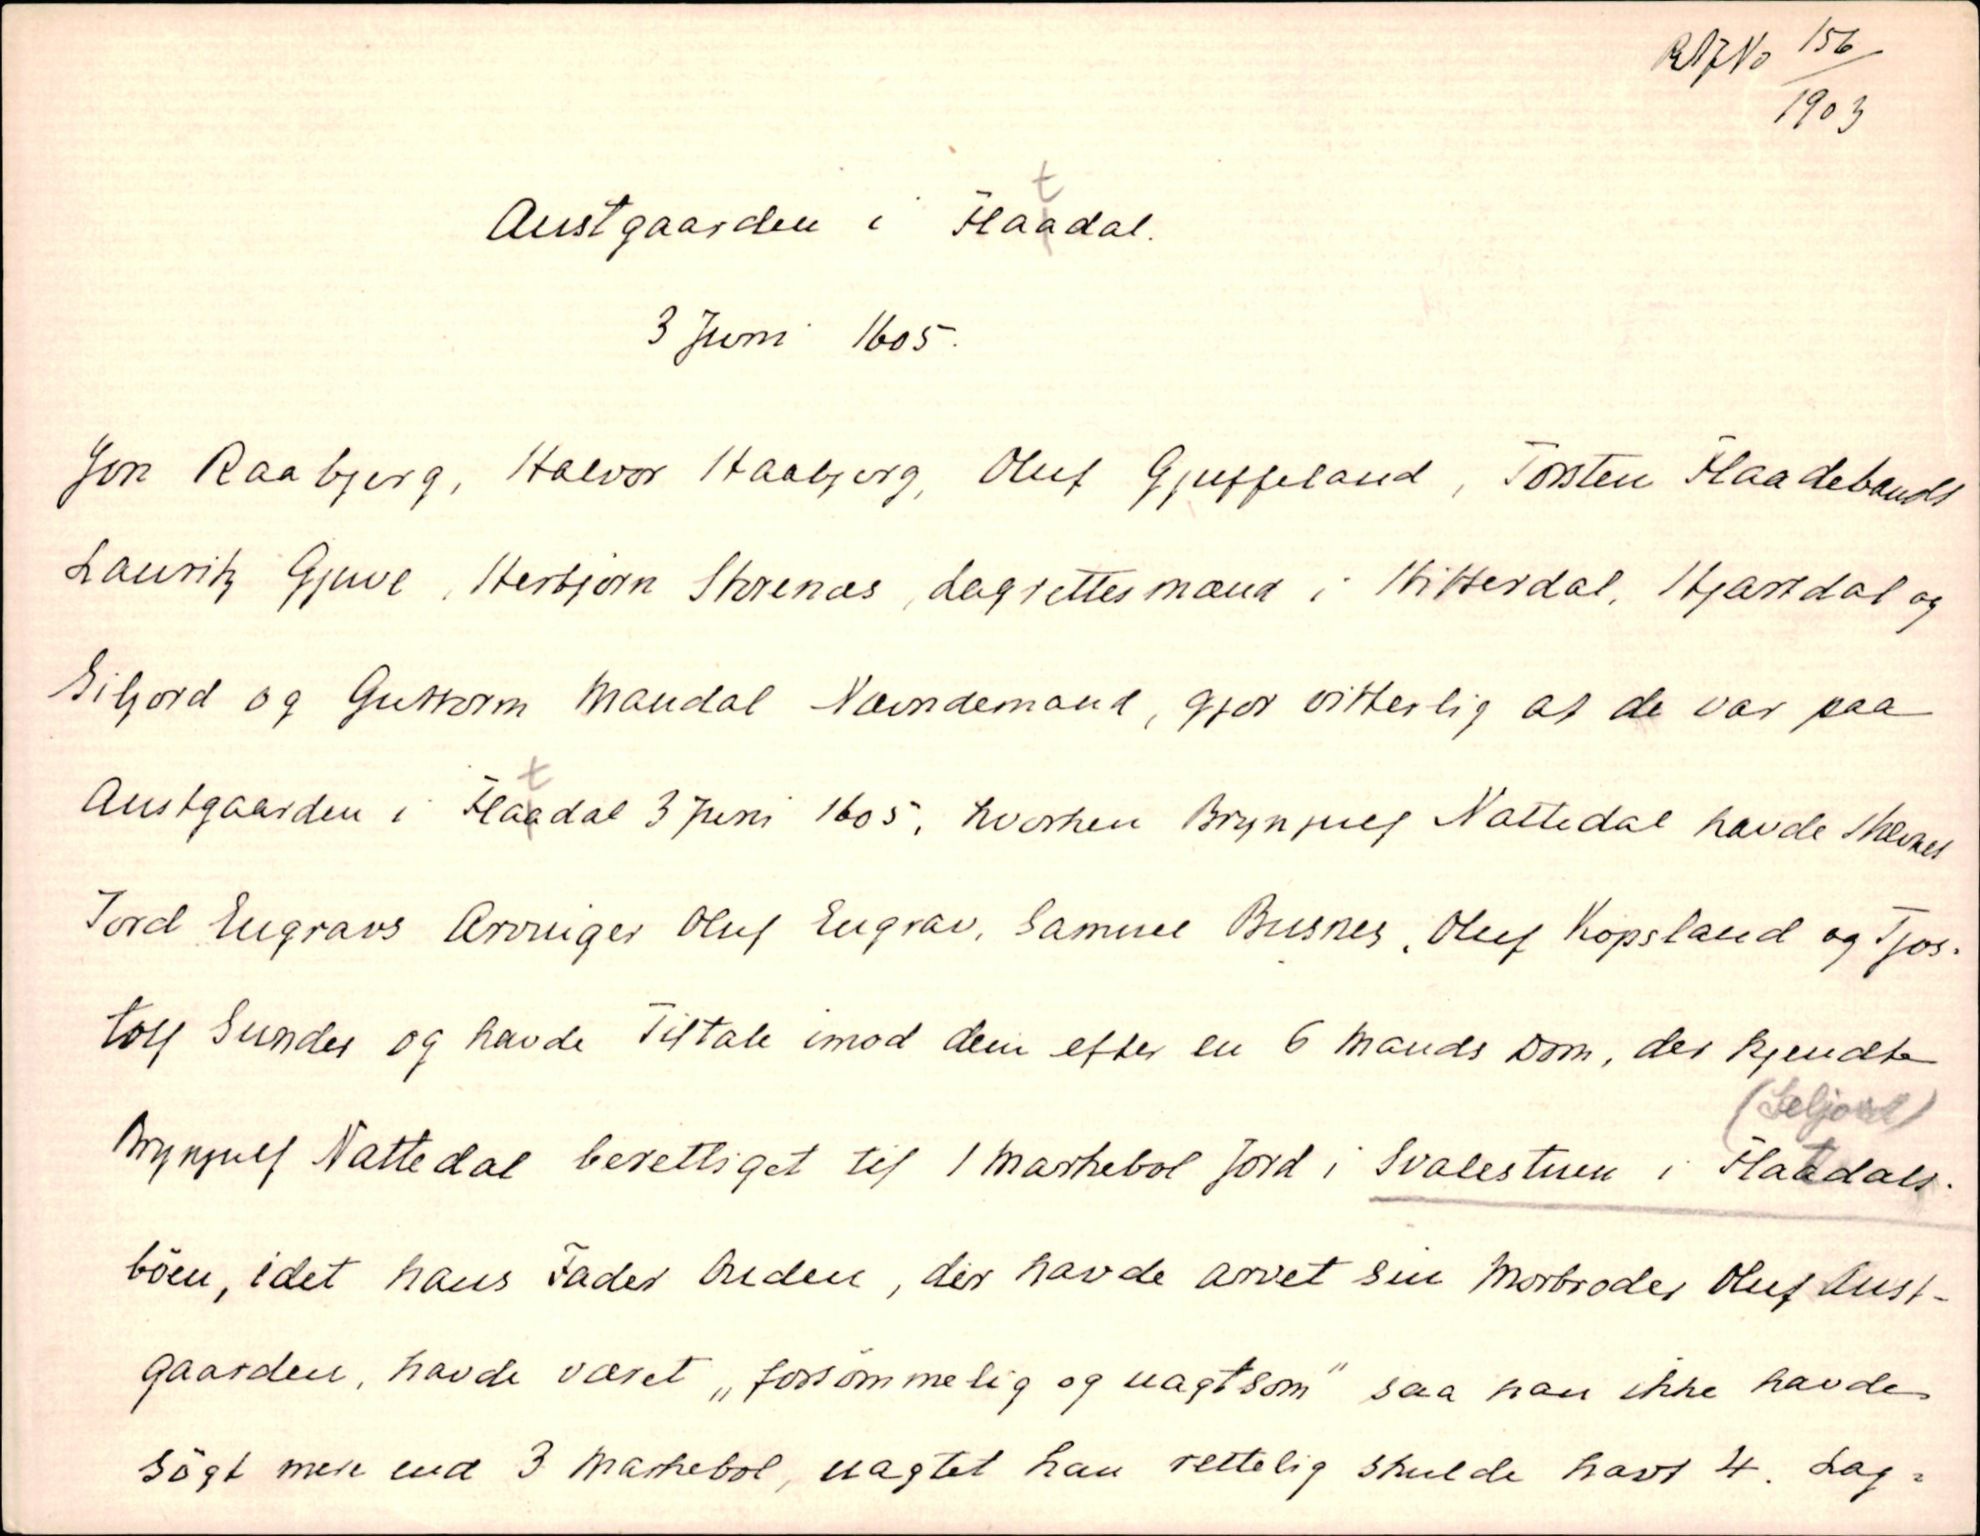 RA J No 156
1903
Austgaarden i Flatdal.
3 Juni 1605.
Jon Raabjerg, Halvor Haabjerg, Oluf Gjuffeland, Torsten Flaadebands
Lauritz Gjuve, Herbjørn Storenæs, Lagrettesmænd i Hitterdal, Hjartdal og
Siljord og Guttorm Mandal Nævndemand, gjør vitterlig at de var paa
Austgaarden i Flatdal 3 Juni 1605, hvorhen Brynjulf Nattedal havde stævnet
Tord Engravs Arvinger Oluf Engrav, Samuel Busnes, Oluf Kopsland og Tjos-
tolf Sundes og havde Tiltale imod dem efter en 6 Mands Dom, der kjendte
(Seljord)
Brynjulf Nattedal berettiget til 1 Markebol Jord i Svalestuen i Flatdals-
böen, idet hans Fader Anden, der havde arvet sin Morbroder Oluf Aust-
gaarden, havde været „forsömmelig og uagtsom" saa han ikke havde
sögt mere end 3 Markebol, uagtet han rettelig skulde havt 4. Lag-